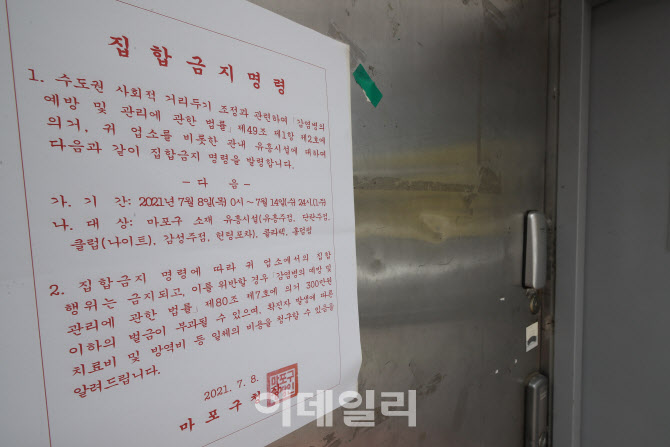 집합금지명령
1. 수도권 사회적 거리두기 조정과 관련하여 「감염병의
예방 및 관리에 관한 법률」제49조 제1항 제2호에
의거, 귀 업소를 비롯한 관내 유흥시설에 대하여
다음과 같이 집합금지 명령을 발령합니다.
- 다 음 -
가. 기 간: 2021년 7월 8일(목) 0시 ~ 7월 14일(수) 24시
나. 대 상: 마포구 소재 유흥시설(유흥주점, 단란주점,
클럽(나이트), 감성주점, 헌팅포차), 콜라텍, 홀덤펍
2. 집합금지 명령에 따라 귀 업소에서의 집합
행위는 금지되고, 이를 위반할 경우 「감염병의 예방 및
관리에 관한 법률」 제80조 제7호에 의거 300만원
이하의 벌금이 부과될 수 있으며, 확진자 발생에 따른
치료비 및 방역비 등 일체의 비용을 청구할 수 있음을
알려드립니다.
2021. 7. 8.
마 포 구
이데일리